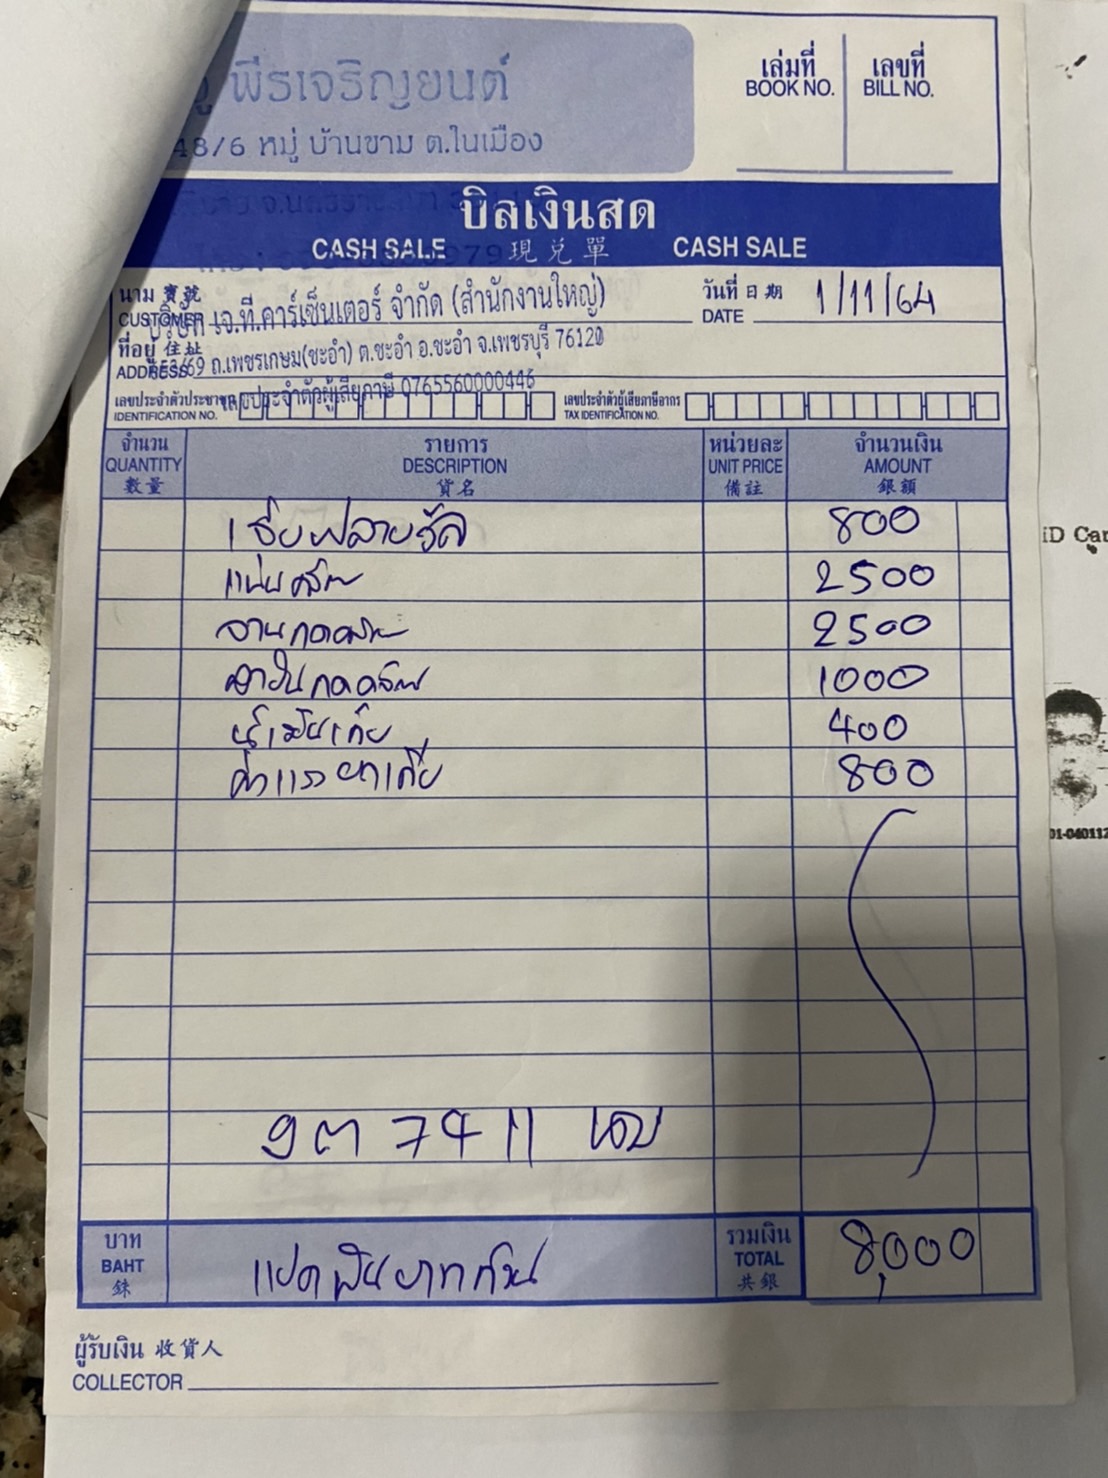 พีรเจริญยนต์
48/6 หมู่ บ้านขาม ต.ในเมือง
เล่มที่
BOOK NO.
เลขที่
BILL NO.
บิลเงินสด
CASH SALE 現兌單 CASH SALE
นาม 寶號
CUSTOMER
บริษัท เจ.ที.คาร์เซ็นเตอร์ จำกัด (สำนักงานใหญ่)
วันที่ 日期
DATE
1/11/64
ที่อยู่ 住址
ADDRESS
ถ.เพชรเกษม(ชะอำ) ต.ชะอำ อ.ชะอำ จ.เพชรบุรี 76120
เลขประจำตัวผู้เสียภาษี 0765560000446
เลขประจำตัวประชาชน
IDENTIFICATION NO.
เลขประจำตัวผู้เสียภาษีอากร
TAX IDENTIFICATION NO.
จำนวน
QUANTITY
數量
รายการ
DESCRIPTION
貨名
หน่วยละ
UNIT PRICE
備註
จำนวนเงิน
AMOUNT
銀額
800
แผ่นครัช 2500
จานกดครัช 2500
1000
400
800
7411
บาท
BAHT
銖
แปดพันบาทถ้วน
รวมเงิน
TOTAL
共銀
8,000
ผู้รับเงิน 收貨人
COLLECTOR
iD Car
01-040112